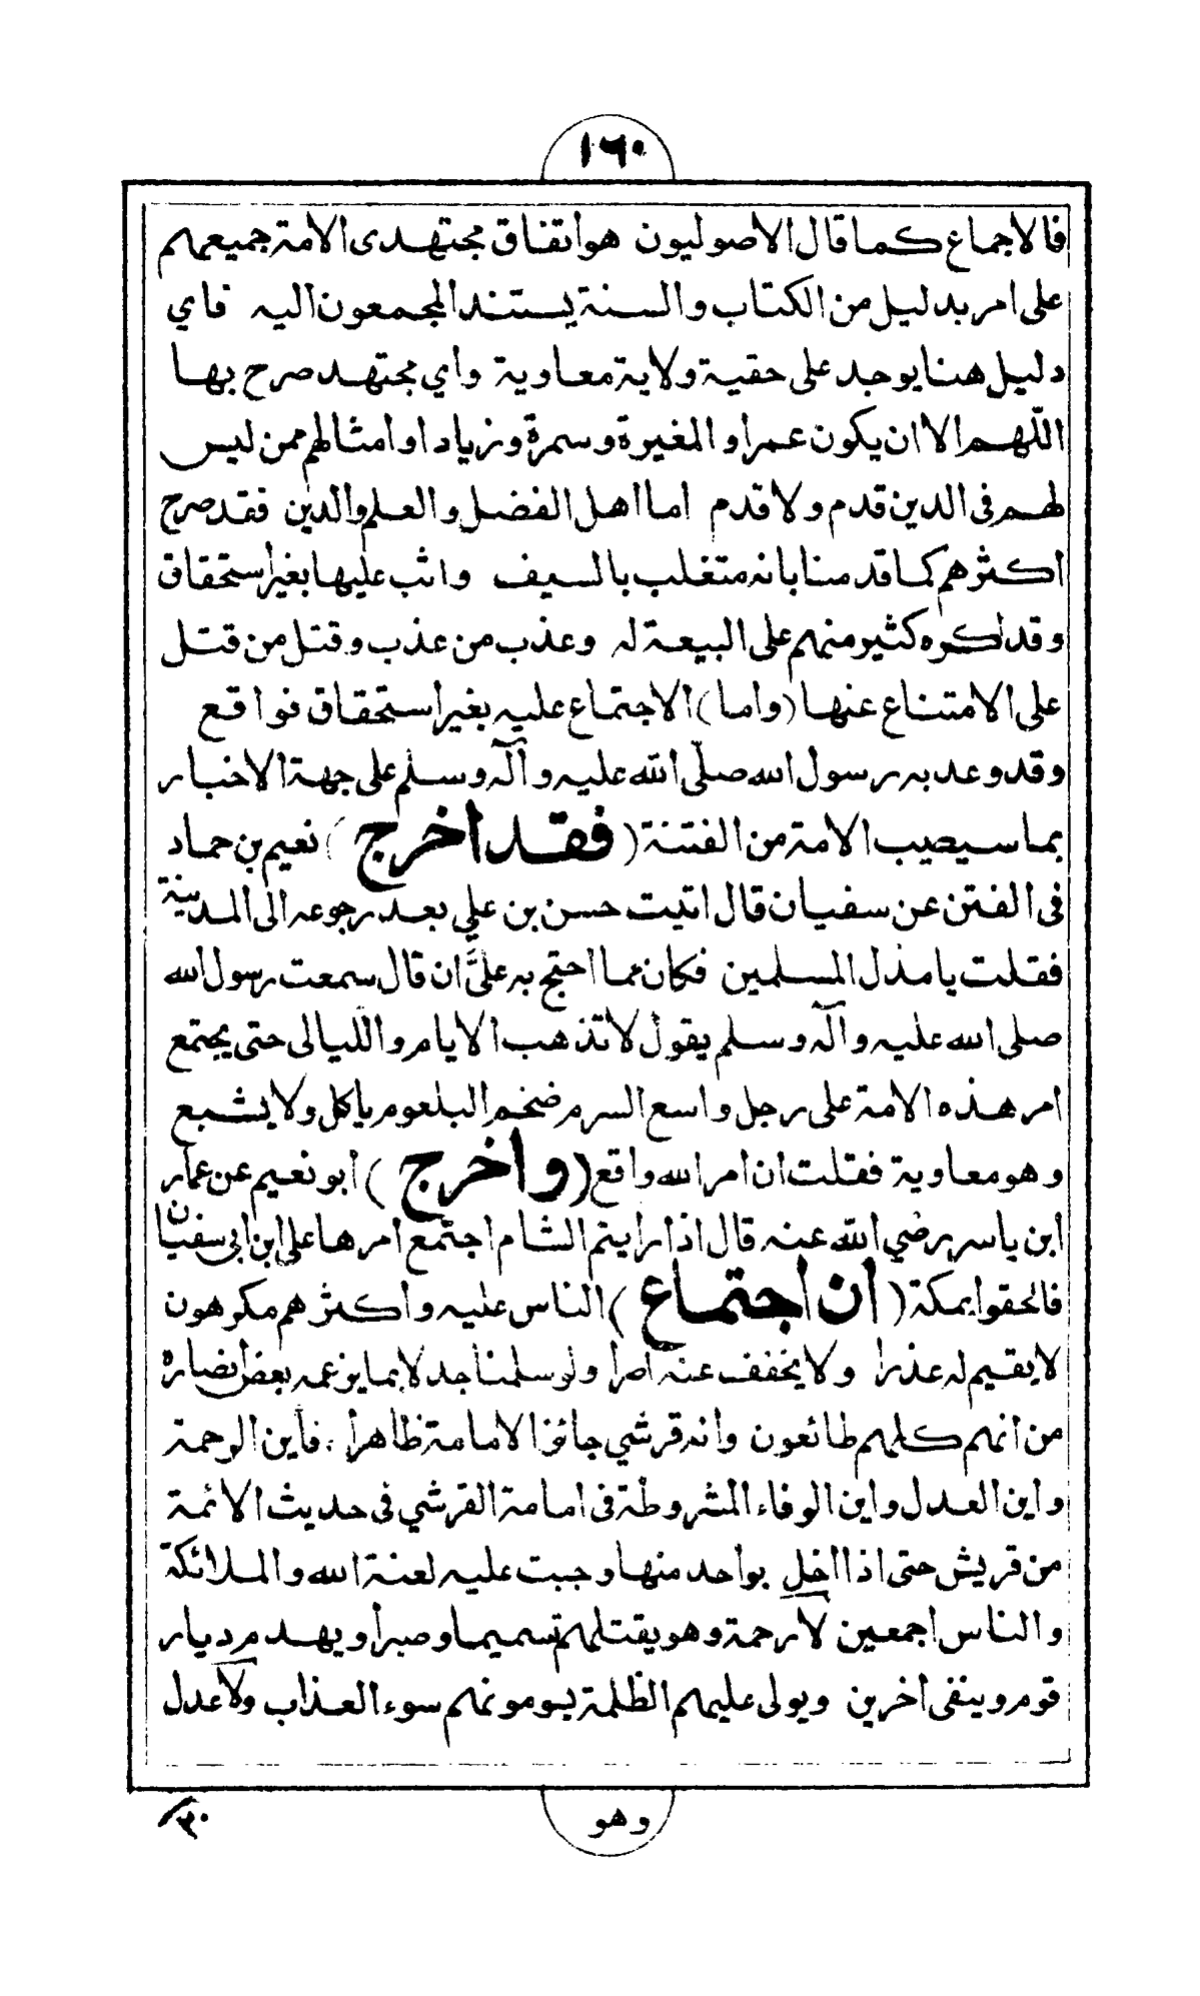 ١٦٠
فالاجماع كما قال الاصوليون هو اتفاق مجتهدى الامة جميعهم
على امر بدليل من الكتاب والسنة يستند المجمعون اليه فاي
دليل هنا يوجد على حقية ولاية معاوية واي مجتهد صرح بها
اللهم الا ان يكون عمرا والمغيرة وسمرة وزيادا وامثالهم ممن ليس
لهم فى الدين قدم ولا قدم اما اهل الفضل والعلم والدين فقد صرح
اكثرهم كما قدمنا بانه متغلب بالسيف واثب عليها بغير استحقاق
وقد اكره كثير منهم على البيعة له وعذب من عذب وقتل من قتل
على الامتناع عنها (واما) الاجتماع عليه بغير استحقاق فواقع
وقد وعد به رسول الله صلّى الله عليه وآله وسلم على جهة الاخبار
بما سيصيب الامة من الفتنة (فقد اخرج) نعيم بن حماد
فى الفتن عن سفيان قال اتيت حسن بن علي بعد رجوعه الى المدينة
فقلت يا مذل المسلمين فكان مما احتج به عليَّ ان قال سمعت رسول الله
صلى الله عليه وآله وسلم يقول لا تذهب الايام والليالى حتى يجتمع
امر هذه الامة على رجل واسع السرم ضخم البلعوم ياكل ولا يشبع
وهو معاوية فقلت ان امر الله واقع (واخرج) ابو نعيم عن عمار
ابن ياسر رضي الله عنه قال اذا رايتم الشام اجتمع امرها على ابن ابى سفيان
فالحقوا بمكة (ان اجتماع) الناس عليه واكثرهم مكرهون
لا يقيم له عذرا ولا يخفف عنه اصرا ولو سلمنا جدلا بما يزعمه بعض انصاره
من انهم كلهم طائعون وانه قرشي جائز الامامة ظاهرا ، فأين الرحمة
واين العدل واين الوفاء المشروطة فى امامة القرشي فى حديث الائمة
من قريش حتى اذا اخل بواحد منها وجبت عليه لعنة الله والملائكة
والناس اجمعين لا رحمة وهو يقتلهم تسميما وصبرا ويهدم ديار
قوم وينفى اخرين ويولى عليهم الظلمة يسومونهم سوء العذاب ولا عدل
وهو